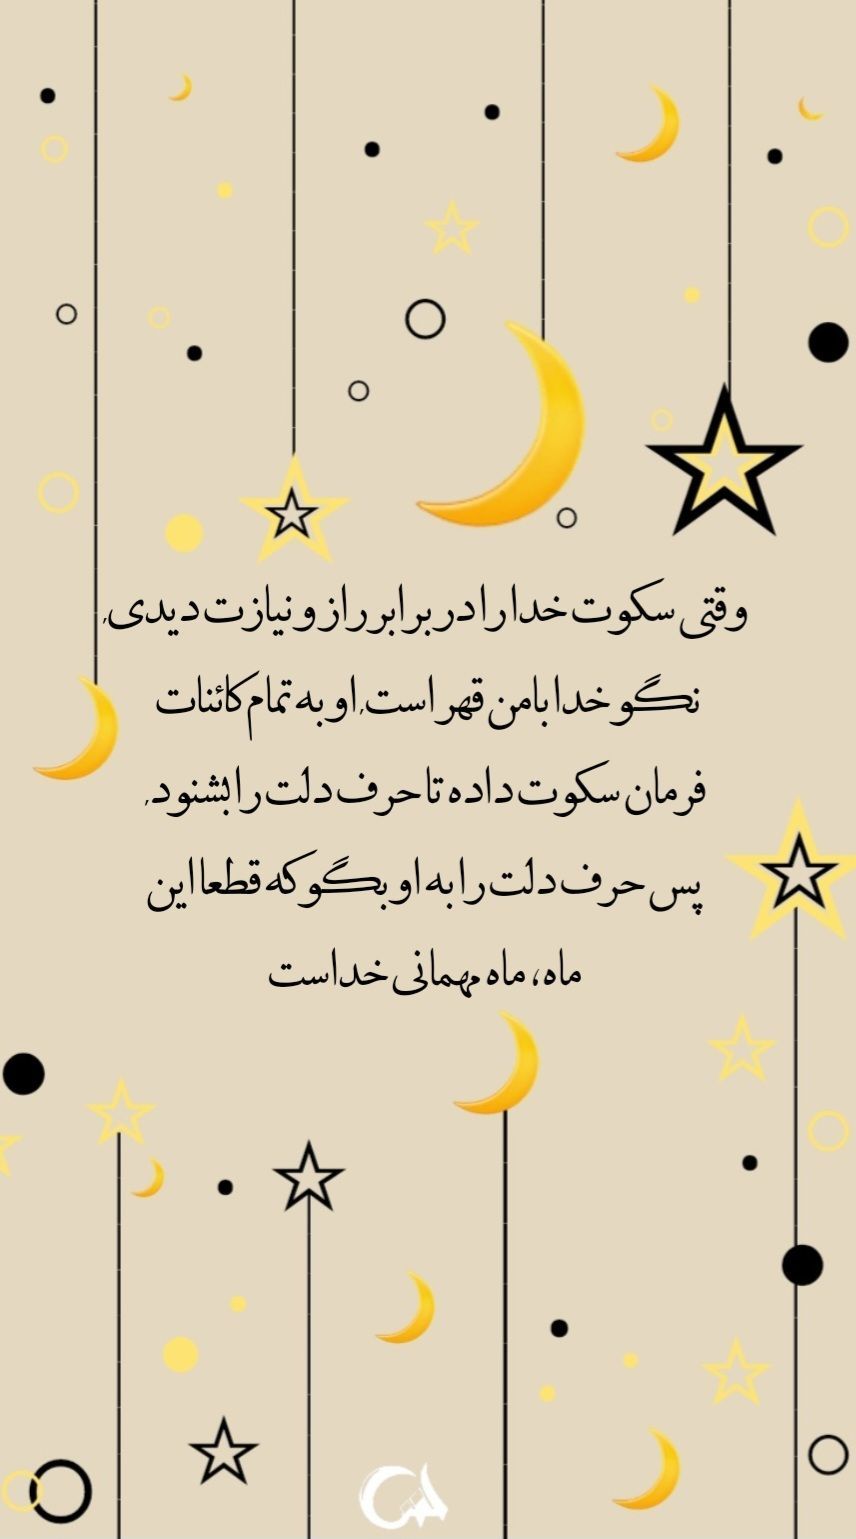 وقتی سکوت خدا را در برابر راز و نیازت دیدی,
نگو خدا با من قهر است, او به تمام کائنات
فرمان سکوت داده تا حرف دلت را بشنود,
پس حرف دلت را به او بگو که قطعا این
ماه، ماه مهمانی خداست